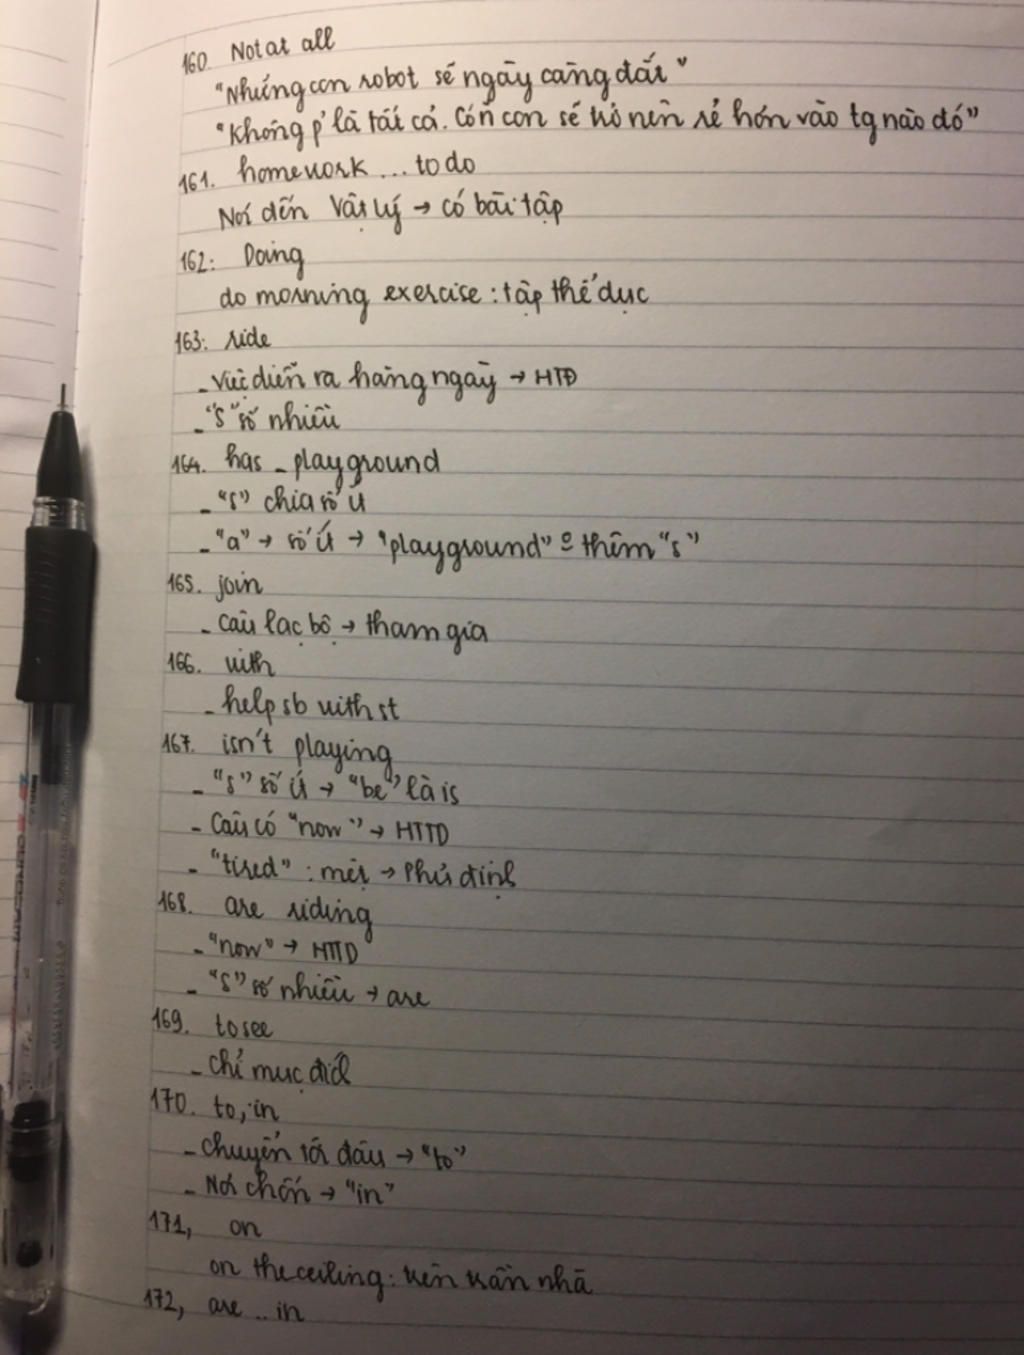 160. Not at all
"Những con robot sẽ ngày càng đắt"
"Không p' là tất cả. Có n con sẽ trở nên rẻ hơn vào tg nào đó"
161. homework ... to do
Nói đến Vật lý → có bài tập
162: Doing
do morning exercise : tập thể dục
163: ride
- Việc diễn ra hàng ngày → HTĐ
- "S" số nhiều
164. has - playground
- "s" chia số ít
- "a" → số ít → "playground" o thêm "s"
165. join
- Câu lạc bộ → tham gia
166. with
- help sb with st
167. isn't playing
- "s" số ít → "be" là is
- Câu có "now" → HTTD
- "tired" : mệt → Phủ định
168. are riding
- "now" → HTTD
- "S" số nhiều → are
169. to see
- Chỉ mục đích
170. to, in
- Chuyển tới đâu → "to"
- Nơi chốn → "in"
171, on
on the ceiling : trên trần nhà
172, are .. in